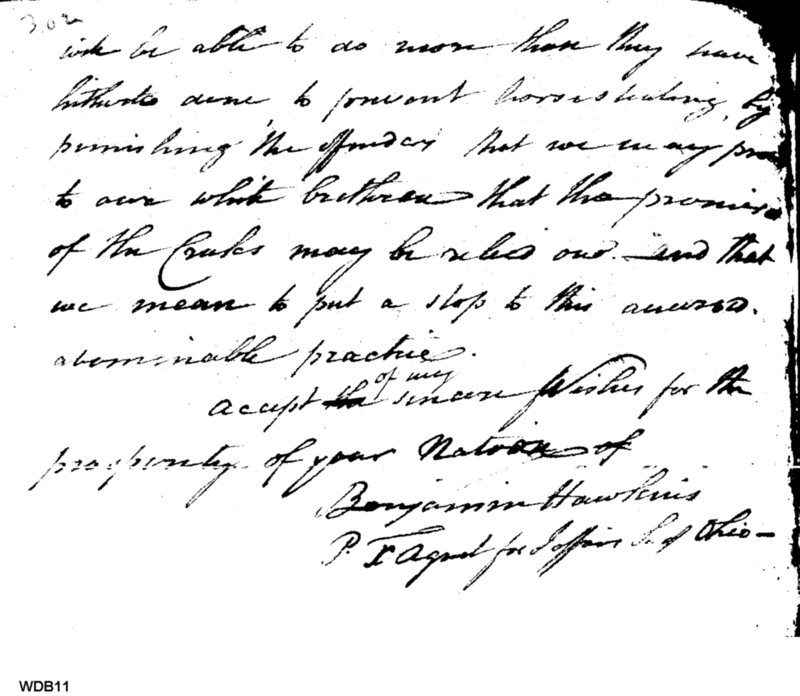 302
will be able to do more than they have
hitherto done, to prevent horsestealing, by
punishing the offenders that we may pro
to our white brethren that the promises
of the Creeks may be relied one. and that
we mean to put a stop to this accursed
abominable practice.
accept of my sincere Wishes for the
prosperity of your Nation of
Benjamin Hawkins
P. T. Agent for I affairs S. of Ohio—
WDB11